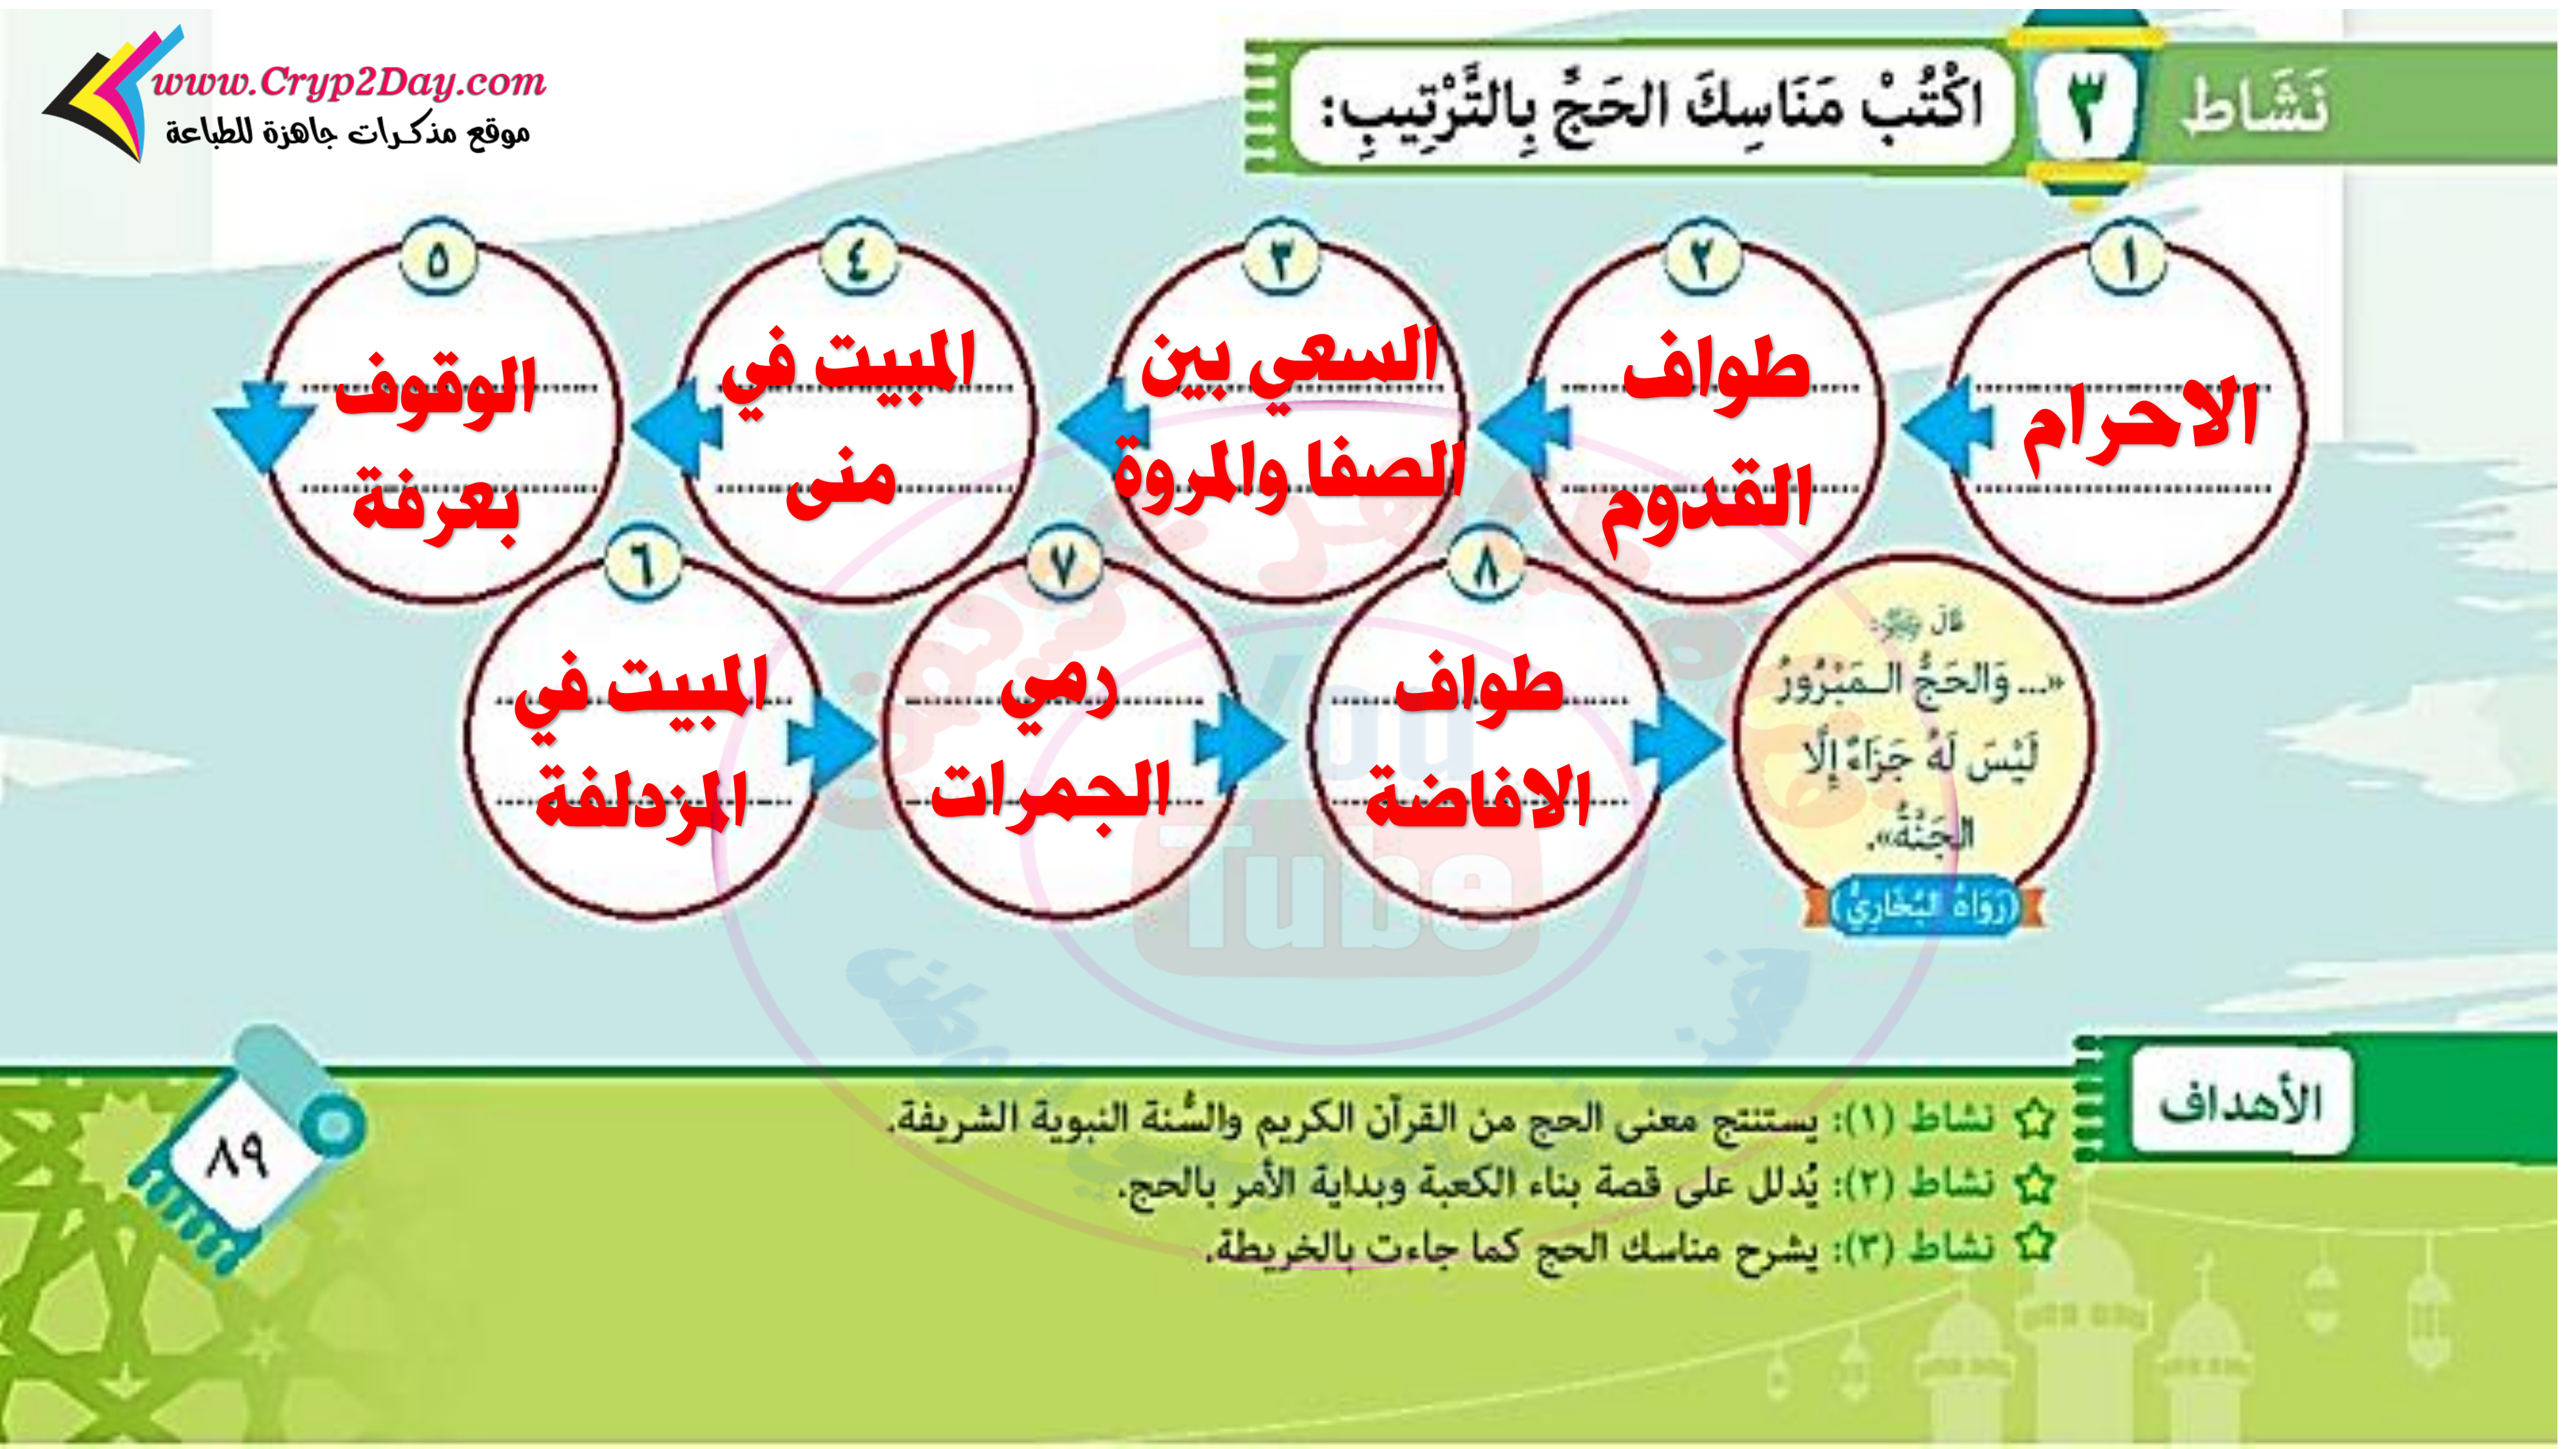 www.Cryp2Day.com
موقع مذكرات جاهزة للطباعة
نَشَاط
٣
اكْتُبْ مَنَاسِكَ الحَجِّ بِالتَّرْتِيبِ:
١
الاحرام
٢
طواف
القدوم
٣
السعي بين
الصفا والمروة
٤
المبيت في
منى
٥
الوقوف
بعرفة
٦
المبيت في
المزدلفة
٧
رمي
الجمرات
٨
طواف
الافاضة
قَالَ ﷺ:
«... وَالحَجُّ الـمَبْرُورُ
لَيْسَ لَهُ جَزَاءٌ إِلَّا
الجَنَّةُ».
(رَوَاهُ البُخَارِيُّ)
You
Tube
الأهداف
نشاط (١): يستنتج معنى الحج من القرآن الكريم والسُّنة النبوية الشريفة.
نشاط (٢): يُدلل على قصة بناء الكعبة وبداية الأمر بالحج.
نشاط (٣): يشرح مناسك الحج كما جاءت بالخريطة.
٨٩